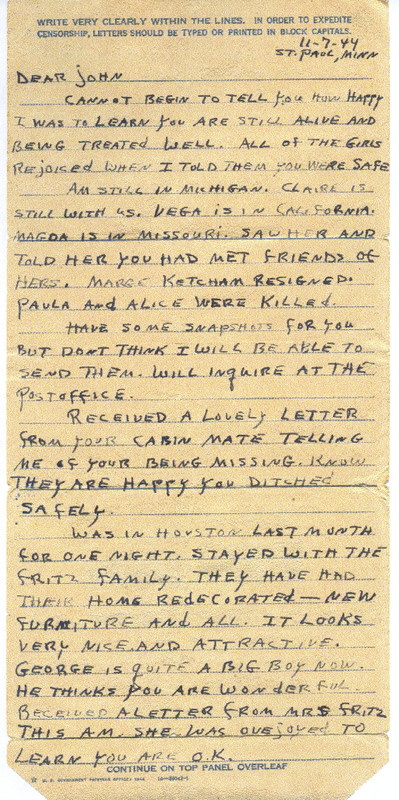 WRITE VERY CLEARLY WITHIN THE LINES. IN ORDER TO EXPEDITE
CENSORSHIP, LETTERS SHOULD BE TYPED OR PRINTED IN BLOCK CAPITALS.
11-7-44
ST. PAUL, MINN
DEAR JOHN
CANNOT BEGIN TO TELL YOU HOW HAPPY
I WAS TO LEARN YOU ARE STILL ALIVE AND
BEING TREATED WELL. ALL OF THE GIRLS
REJOICED WHEN I TOLD THEM YOU WERE SAFE
AM STILL IN MICHIGAN. CLAIRE IS
STILL WITH US. VEGA IS IN CALIFORNIA.
MAGDA IS IN MISSOURI. SAW HER AND
TOLD HER YOU HAD MET FRIENDS OF
HERS. MARGE KETCHAM RESIGNED.
PAULA AND ALICE WERE KILLED.
HAVE SOME SNAPSHOTS FOR YOU
BUT DONT THINK I WILL BE ABLE TO
SEND THEM. WILL INQUIRE AT THE
POSTOFFICE.
RECEIVED A LOVELY LETTER
FROM YOUR CABIN MATE TELLING
ME OF YOUR BEING MISSING. KNOW
THEY ARE HAPPY YOU DITCHED
SAFELY.
WAS IN HOUSTON LAST MONTH
FOR ONE NIGHT. STAYED WITH THE
FRITZ FAMILY. THEY HAVE HAD
THEIR HOME REDECORATED — NEW
FURNITURE AND ALL. IT LOOKS
VERY NICE AND ATTRACTIVE.
GEORGE IS QUITE A BIG BOY NOW.
HE THINKS YOU ARE WONDERFUL.
RECEIVED A LETTER FROM MRS FRITZ
THIS AM. SHE WAS OVEJOYED TO
LEARN YOU ARE O.K.
CONTINUE ON TOP PANEL OVERLEAF
U. S. GOVERNMENT PRINTING OFFICE